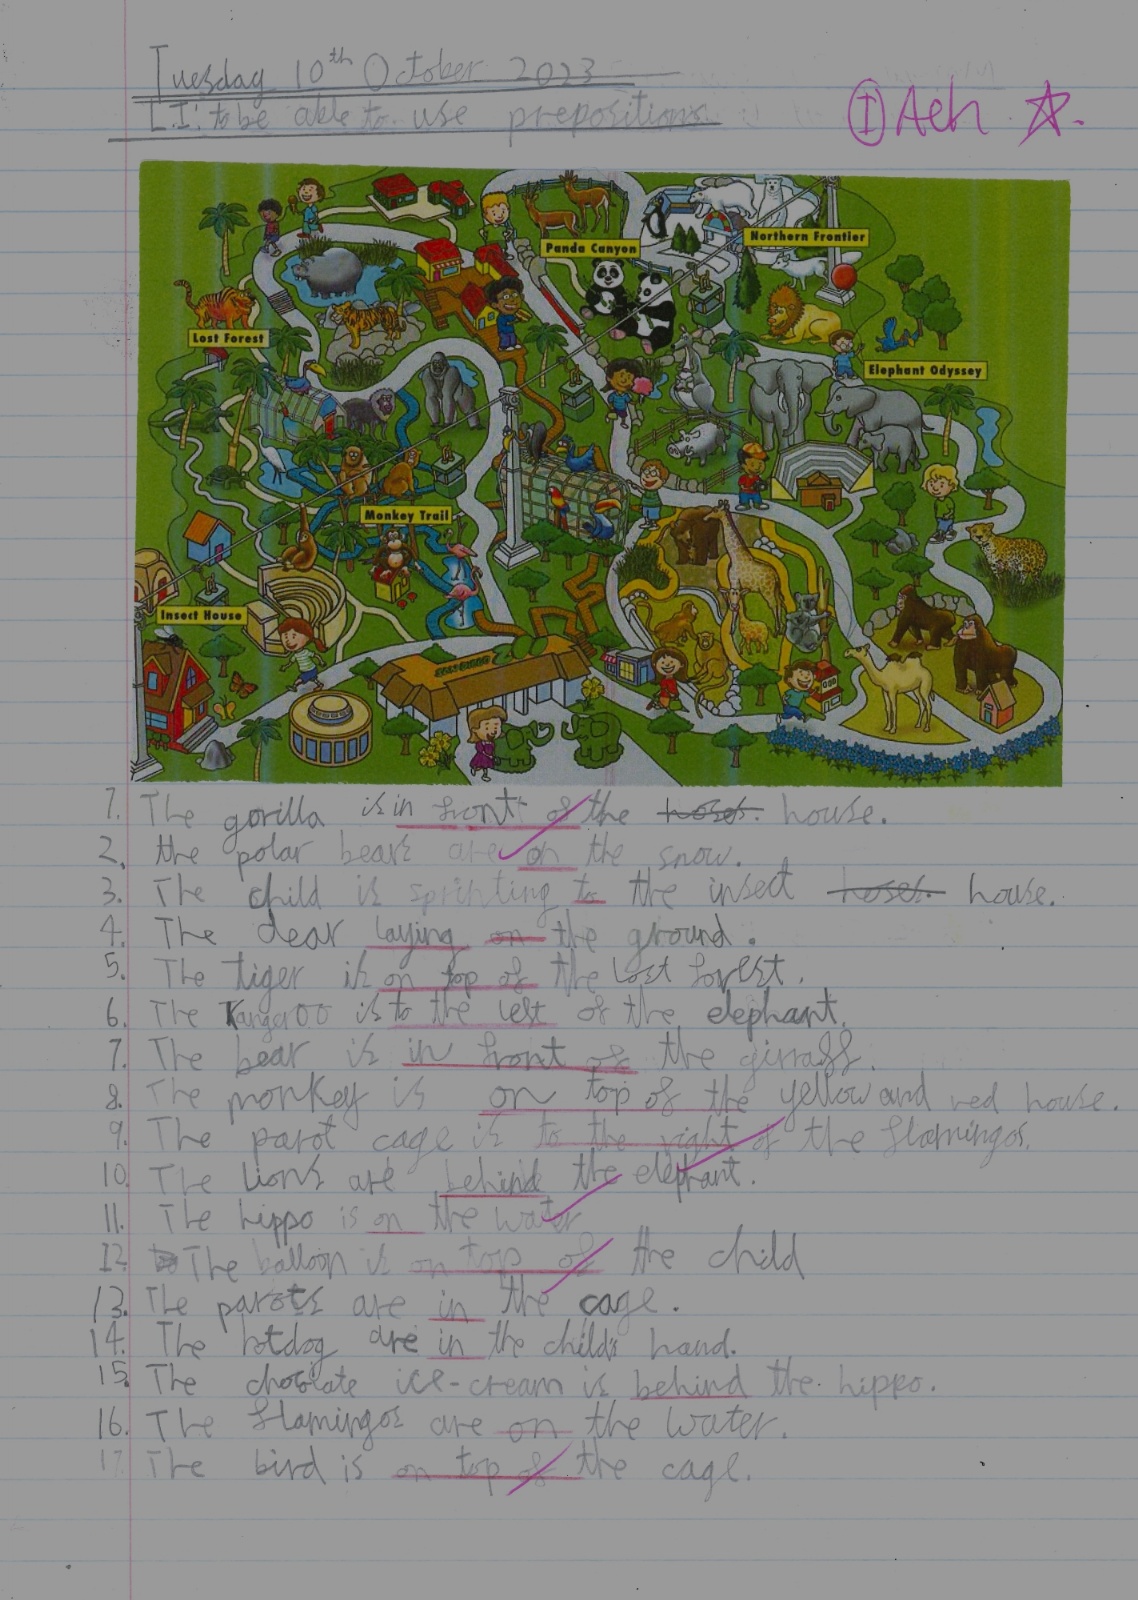 Tuesday 10th October 2023
L.I: to be able to use prepositions
I Ach
Panda Canyon
Northern Frontier
Lost Forest
Elephant Odyssey
Monkey Trail
Insect House
1. The gorilla is in front of the hoses. house.
2. the polar bears are on the snow.
3. The child is sprinting to the insect hoses. house.
4. The dear laying on the ground.
5. The tiger is on top of the Lost forest.
6. The Kangeroo is to the left of the elephant.
7. The bear is in front of the girraff.
8. The monkey is on top of the yellow and red house.
9. The parot cage is to the right of the flamingos.
10. The Lions are behind the elephant.
11. The hippo is on the water
12. The balloon is on top of the child
13. The parots are in the cage.
14. The hotdog are in the child's hand.
15. The chocolate ice-cream is behind the hippo.
16. The flamingos are on the water.
17. The bird is on top of the cage.